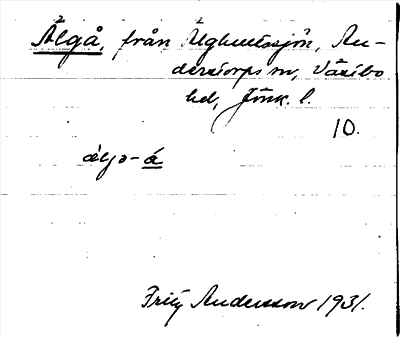 Älgå, från Älghultasjön, An-
derstorps sn, Västbo
hd, Jönk. l.
10.
älja-å
Fritz Andersson 1931.